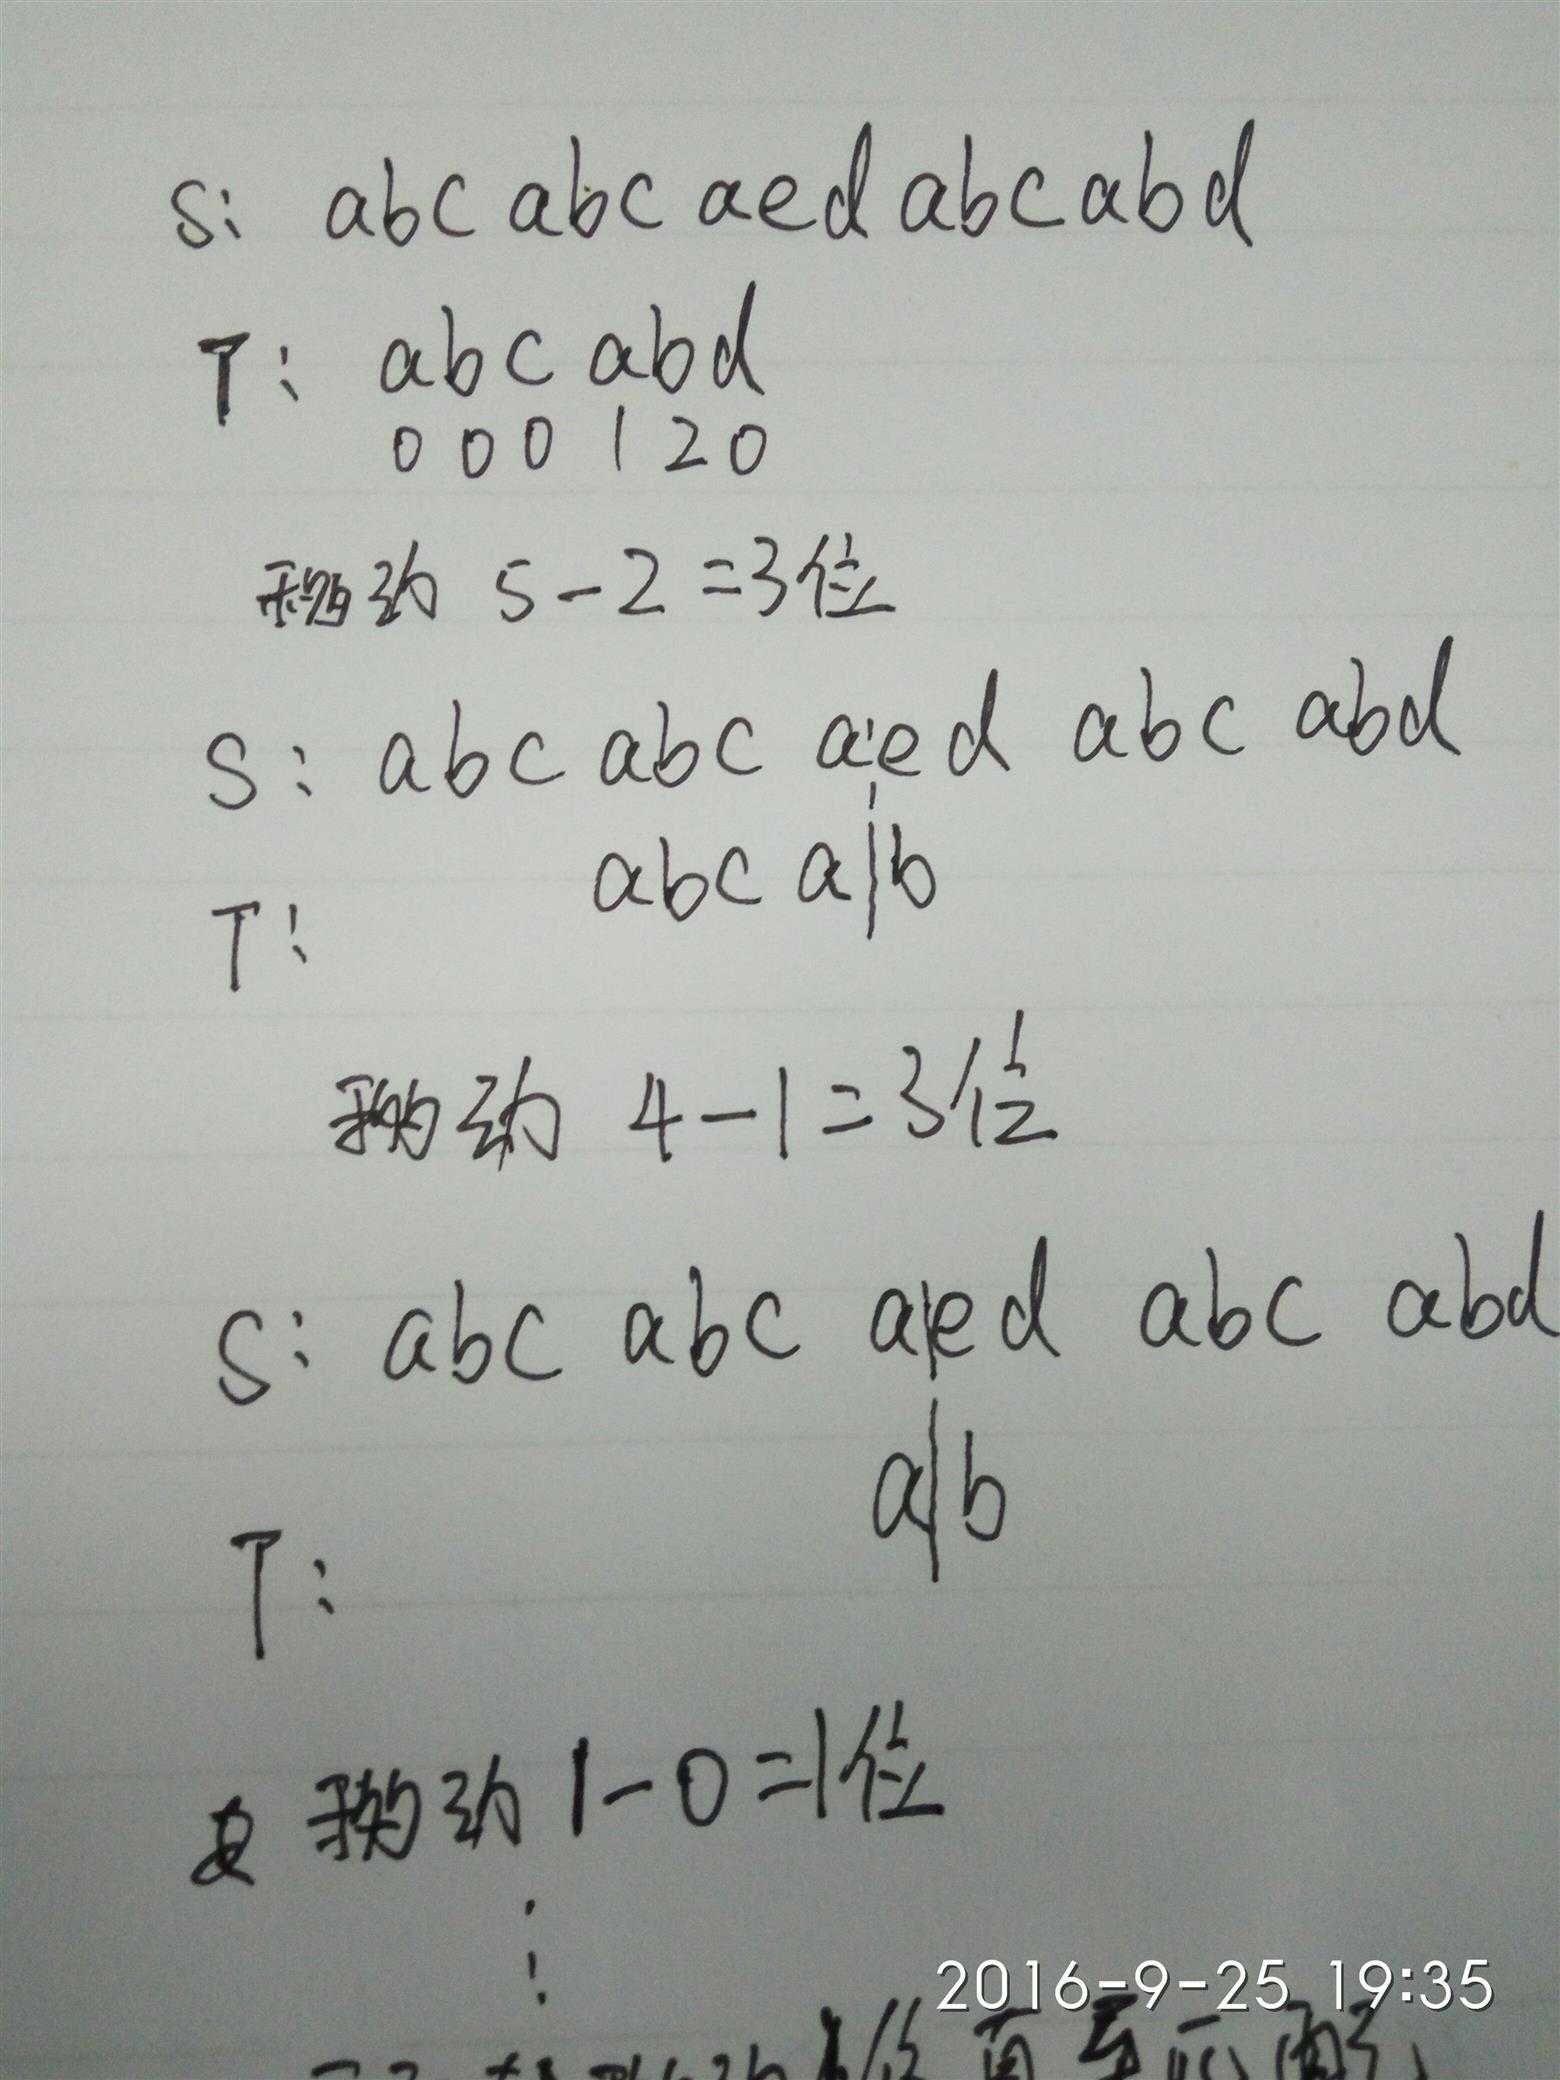 S: abc abc aed abc abd
T: abc abd
0 0 0 1 2 0
移动 5-2=3位
S: abc abc aed abc abd
abc a|b
T:
移动 4-1=3位
S: abc abc a|ed abc abd
a|b
T:
移动 1-0=1位
2016-9-25 19:35